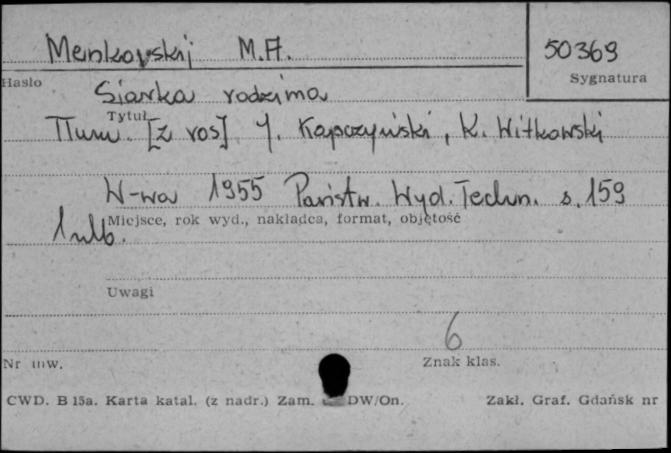 Menkovskij M.A. 50369
Hasło Sygnatura
Siarka rodzima
Tytuł
Tłum. [z ros] J. Kapczyński, K. Witkowski
W-wa 1955 Państw. Wyd. Techn. s. 159
Miejsce, rok wyd., nakładca, format, objętość
1 nlb.
Uwagi
6
Nr inw. Znak klas.
CWD. B 15a. Karta katal. (z nadr.) Zam. DW/On. Zakł. Graf. Gdańsk nr